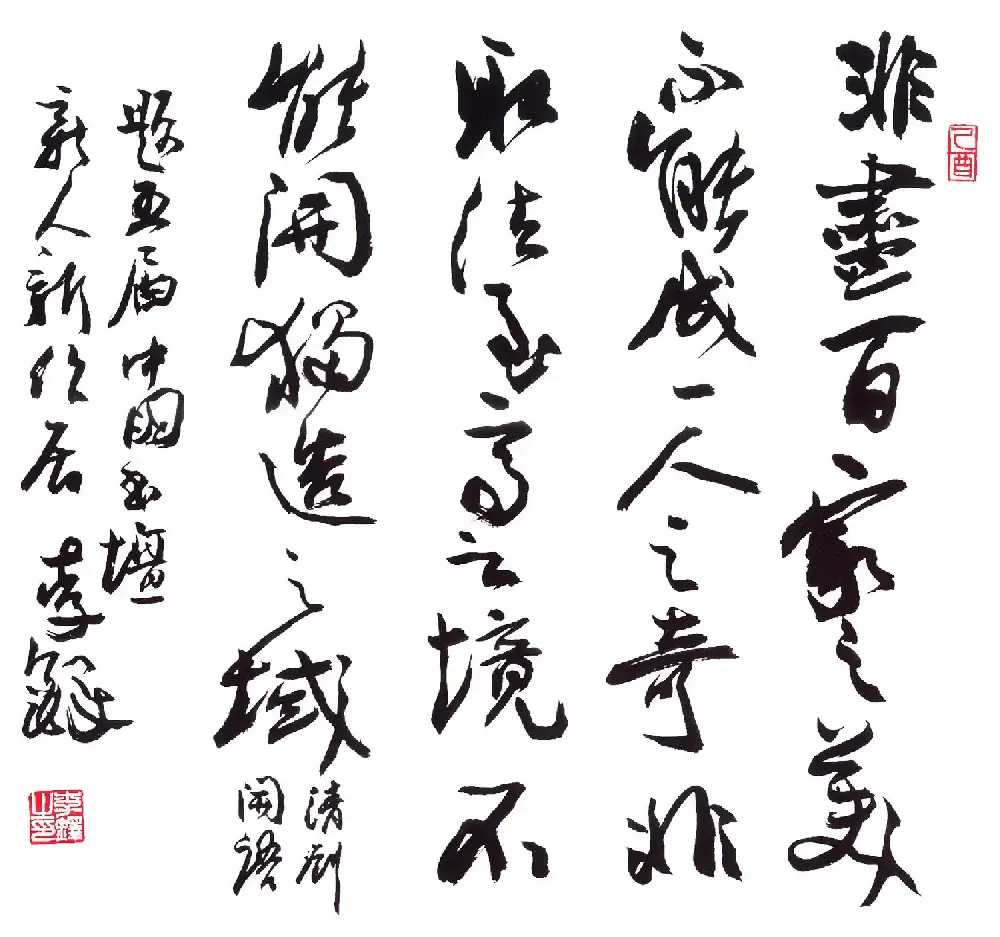 乙酉
非盡百家之美
不能成一人之奇非
取法至高之境不
能開獨造之域
清劉
開語
題五屆中國書壇
新人新作展 李鐸
李鐸之印